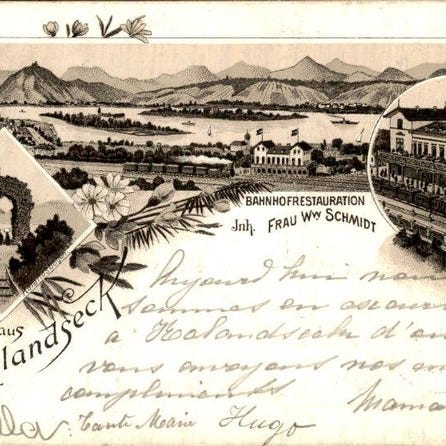 BAHNHOFRESTAURATION
Inh. FRAU Ww SCHMIDT
aus
landseck
nous
sommes en excur
à Rolandseck d'
vous envoyons nos
compliments Mama
Tante Marie Hugo